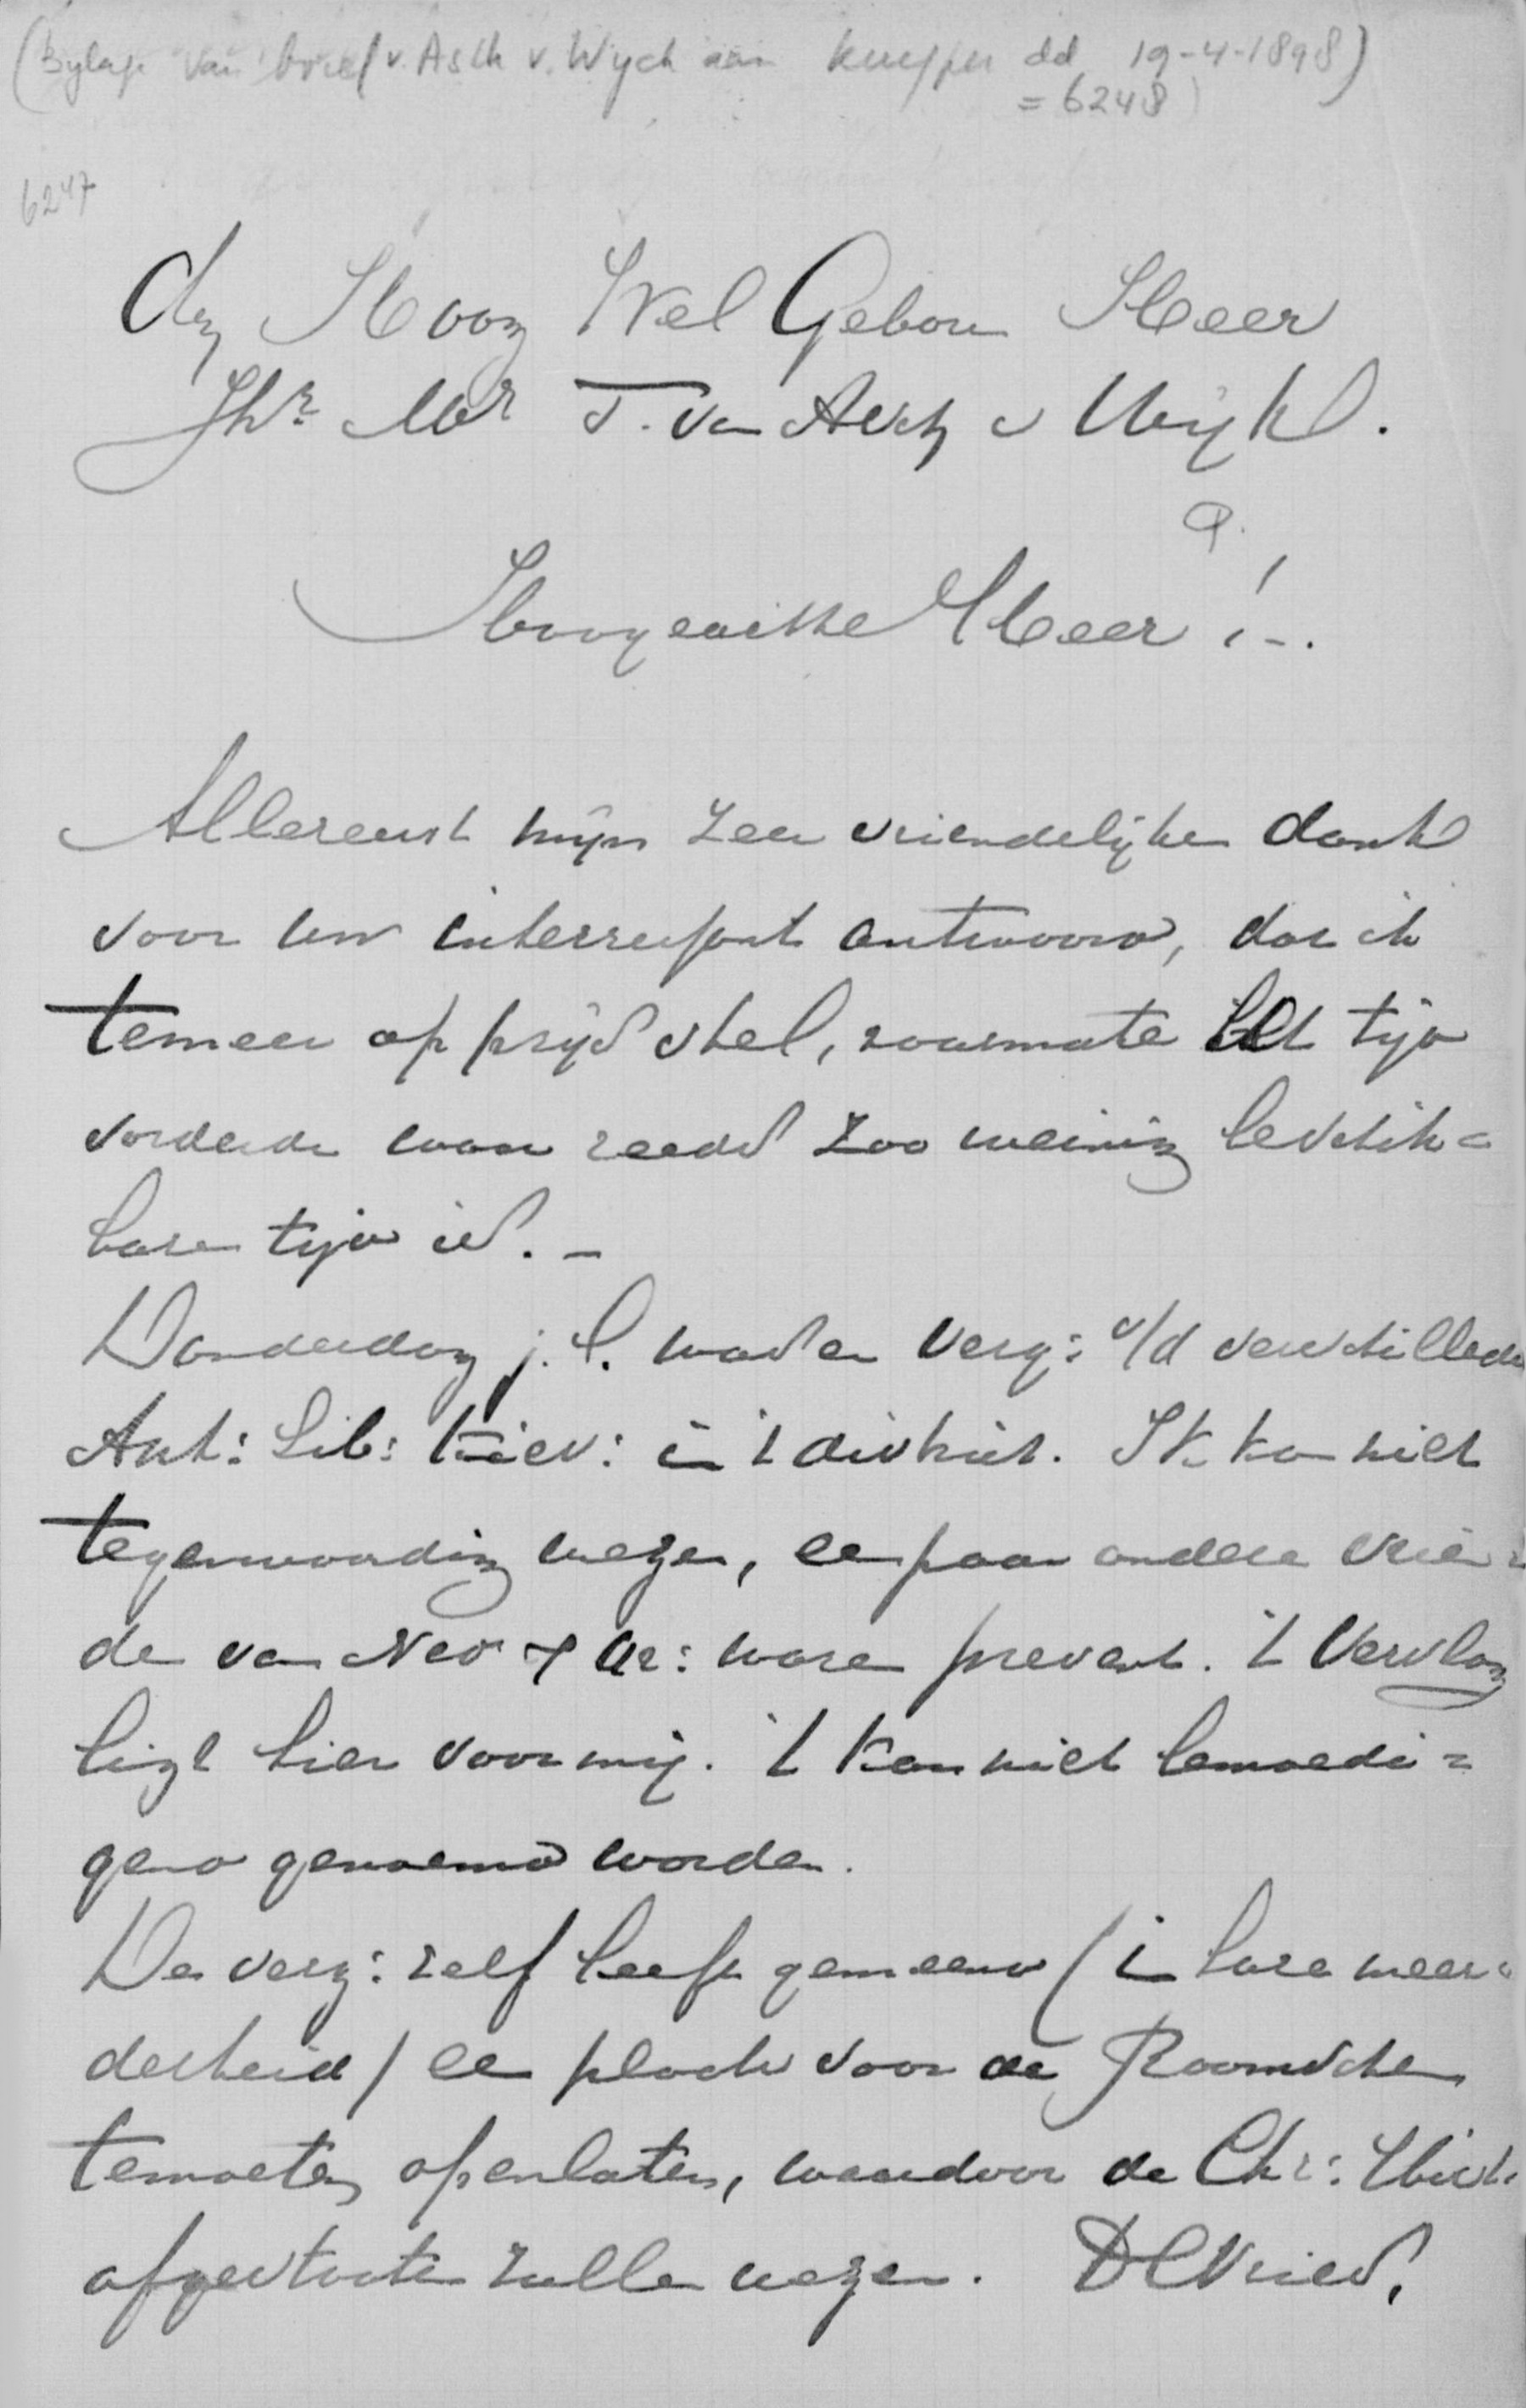 (Bylage van brief v. Asch v. Wyck aan Kuyper dd 19-4-1898)
= 6248)
6247
Aan Hoog Wel Geboren Heer
Jhr Mr T. van Asch v Wijk.
Hoogeachte Heer!-.
Allereerst mijn zeer vriendelijken dank
voor uw interressant antwoord, dat ik
temeer op prijs stel, naarmate het tijd
vorderde waar reeds zoo weinig beschik=
bare tijd is. -
Donderdag j.l. was een verg: v/d verschillende
Ant: Lib: Kiev: in 't district. Ik kon niet
tegenwoordig wezen, een paar andere vrien=
den van Ned & Or: waren present. 't Verslag
ligt hier voor mij. 't Kan niet bemoedi=
gend genoemd worden.
De verg: zelf heeft gemeend (in hare meer=
derheid) een plaats voor de Roomschen
temoeten openlaten, waardoor de Chr: Hist:
afgestooten zullen wezen. De Vries,